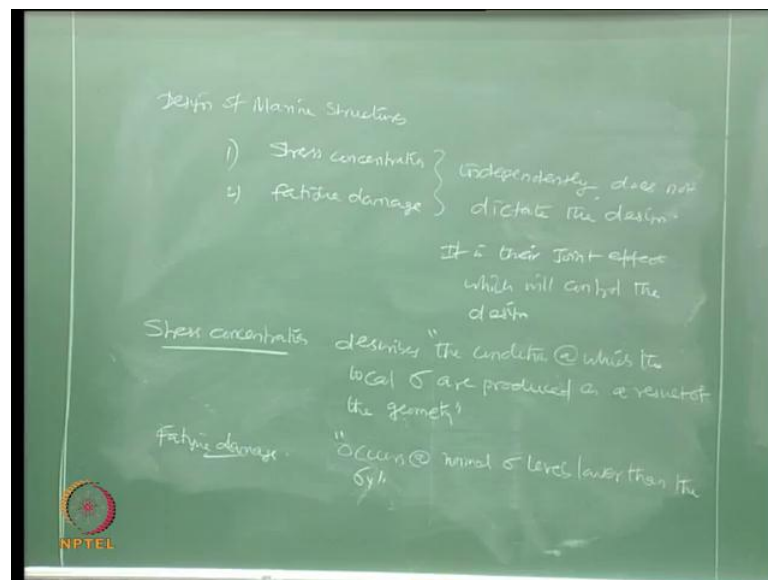 Design of Marine Structures
1) Stress concentration
independently does not
2) fatigue damage
dictate the design.
It is their Joint effect
which will control the
design
Stress concentration describes "the condition @ which the
local σ are produced as a result of
the geometry"
Fatigue damage. "occurs @ nominal σ levels lower than the
σyl.
NPTEL